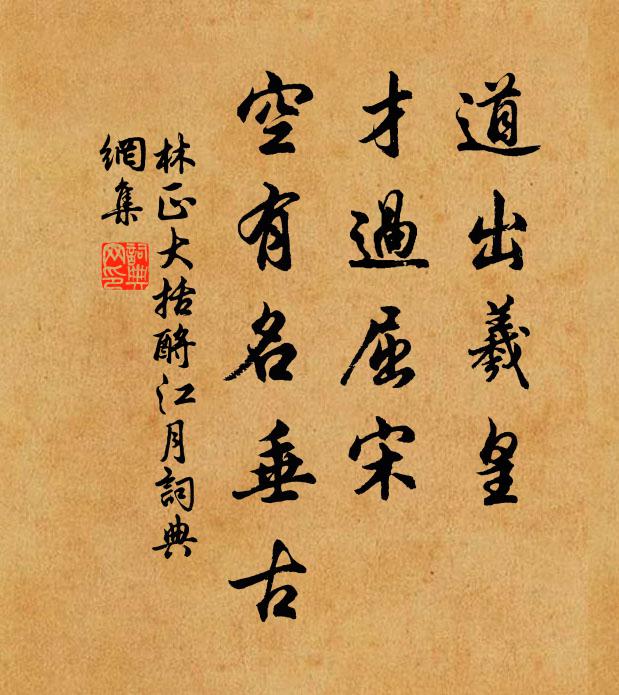 道出羲皇
才過屈宋
空有名垂古
林正大括酹江月詞典
網集
詞典網印